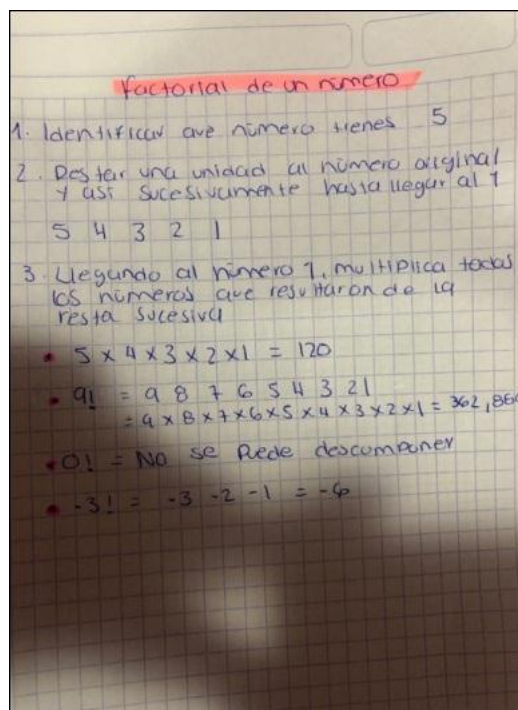 Factorial de un número
1. Identificar que número tienes 5
2. Restar una unidad al número original
y así sucesivamente hasta llegar al 1
5 4 3 2 1
3. Llegando al número 1, multiplica todos
los números que resultaron de la
resta sucesiva
• 5 x 4 x 3 x 2 x 1 = 120
• 9! = 9 8 7 6 5 4 3 2 1
= 9 x 8 x 7 x 6 x 5 x 4 x 3 x 2 x 1 = 362,880
• 0! = No se puede descomponer
• -3! = -3 -2 -1 = -6